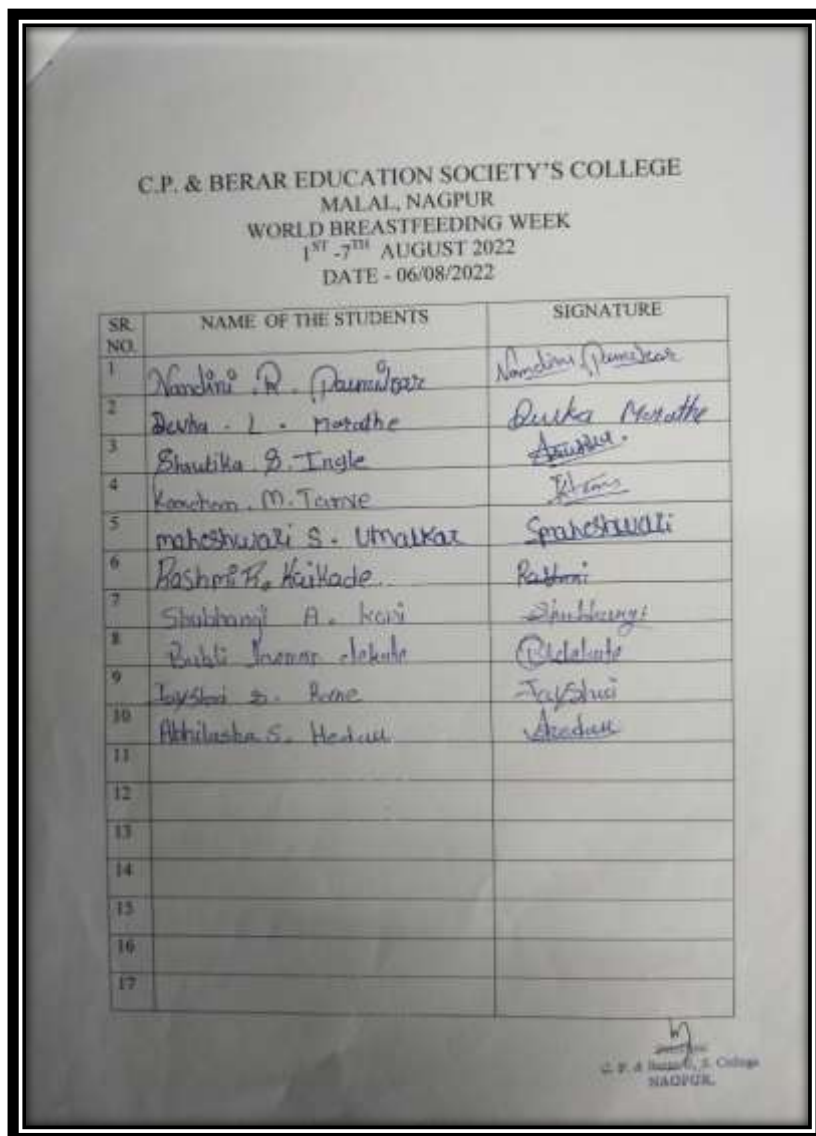 C.P. & BERAR EDUCATION SOCIETY'S COLLEGE
MALAL, NAGPUR
WORLD BREASTFEEDING WEEK
1ST -7TH AUGUST 2022
DATE - 06/08/2022
SR. NO. NAME OF THE STUDENTS SIGNATURE
1 Nandini . R. Nandini
2 Devka . L . Marathe Devka Marathe
3 Shrutika S. Ingle
4 Kanchan . M. Tarve
5 maheshwari S. Umalkar Smaheshwari
6 Rashmi R. Kaikade Rashmi
7 Shubhangi A. kori Shubhangi
8 Bubli
9 Jayshri S. Rane Jayshri
10 Abhilasha S. Hedau Ahedau
11
12
13
14
15
16
17
C. P. & Berar E. S. College
NAGPUR.